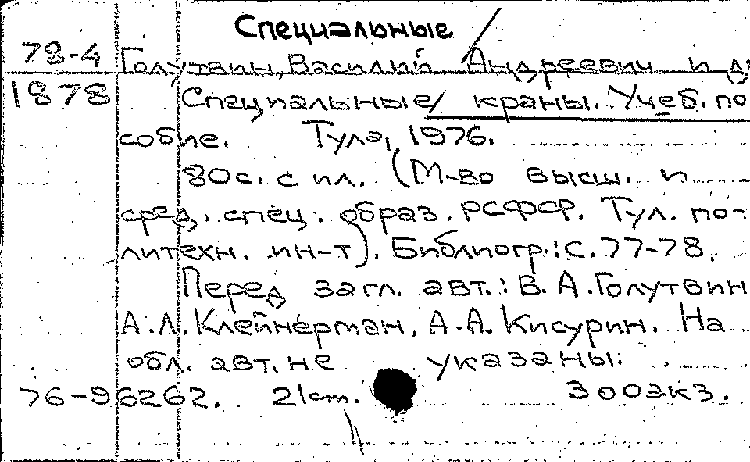 Специальные
78-4 Голутвин, Василий Андреевич и др
1878 Специальные краны. Учеб. по
собие. Тула, 1976.
80с. с ил. (М-во высш. и
сред. спец. образ. РСФСР. Тул. по-
литехн. ин-т). Библиогр.: с. 77-78.
Перед загл. авт.: В. А. Голутвин
А. Л. Клейнерман, А. А. Кисурин. На
обл. авт. не указаны.
76-96262. 21cm. 300экз.